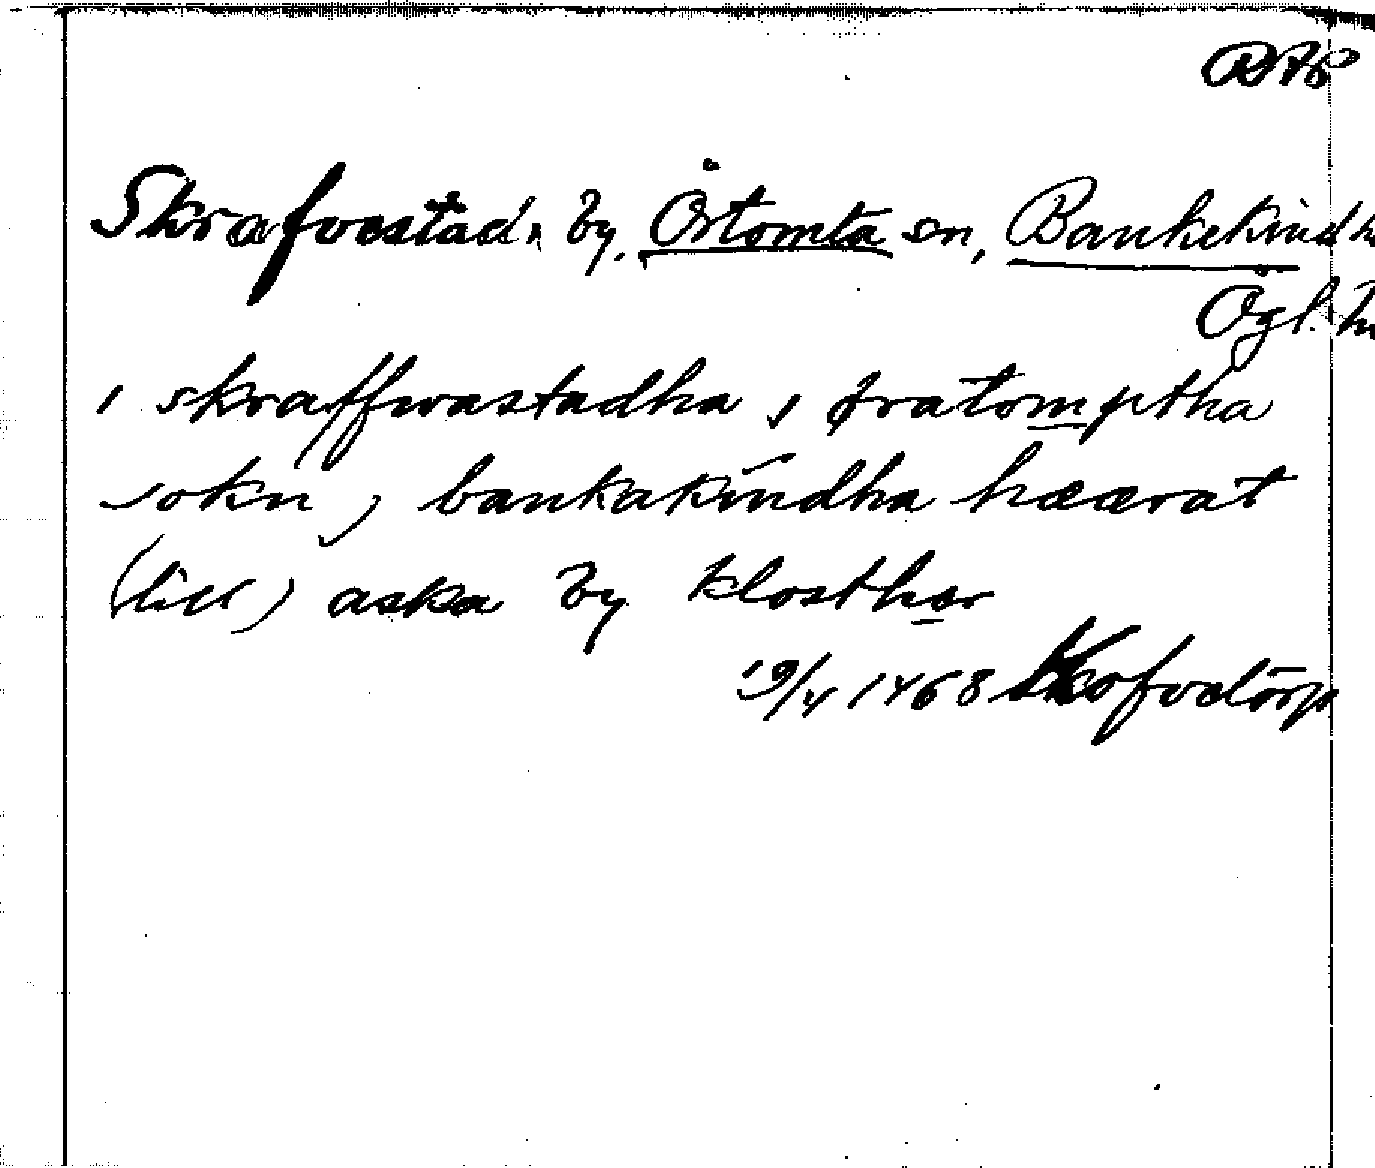 RAP
Skrafvestad, by, Örtomta sn, Bankekind h
Ögl. 
i skraffwastadha i øratomptha
sokn, bankakindha hæærat
(till) aska by klosther
19/4 1468 Skofvetorp